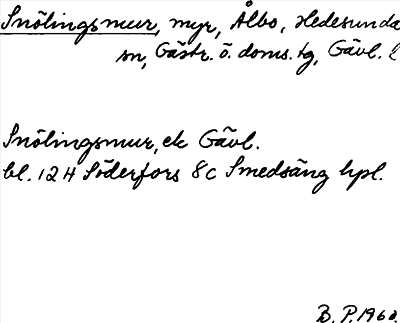 Snölingsmur, myr, Ålbo, Hedesunda
sn, Gästr. ö. doms. tg, Gävl. l
Snölingsmur, ek Gävl.
bl. 12 H Söderfors 8c Smedsäng hpl.
B. P. 1960.